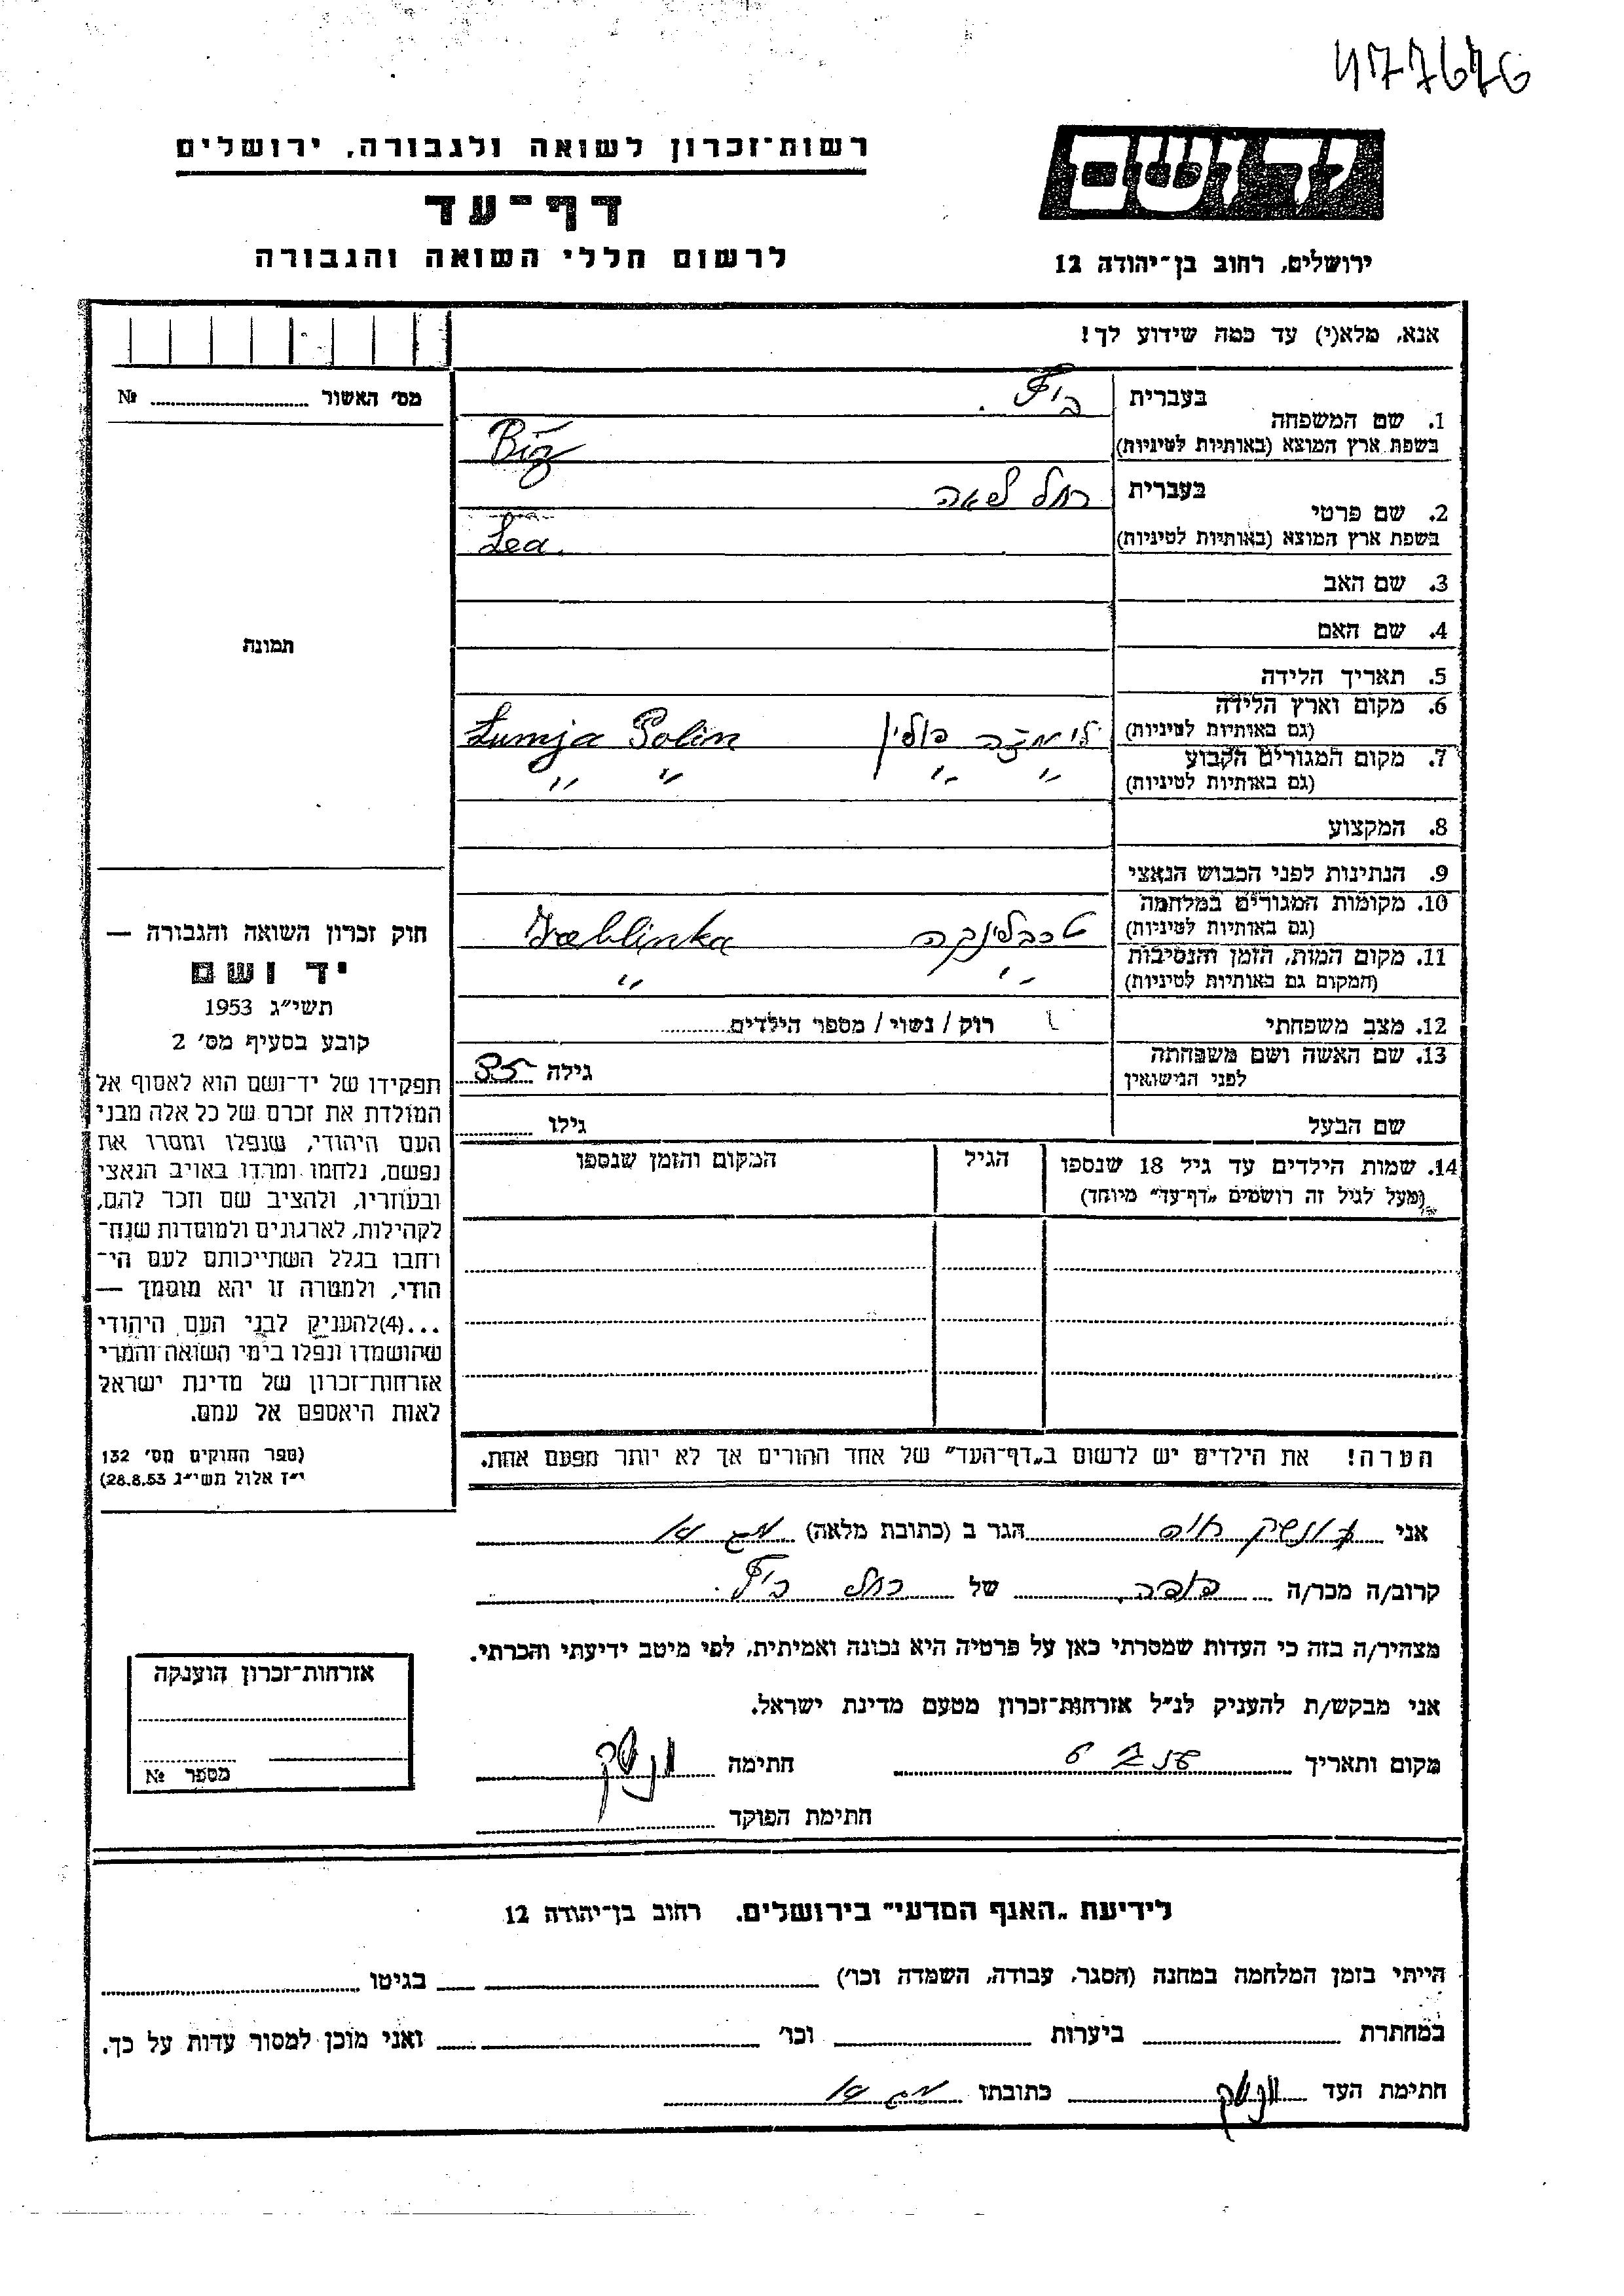 477676
רשות־זכרון לשואה ולגבורה, ירושלים
יד ושם
דף־עד
לרשום חללי השואה והגבורה
ירושלים, רחוב בן־יהודה 12
אנא, מלא(י) עד כמה שידוע לך!
מס׳ האשור № 
בעברית
1. שם המשפחה
בשפת ארץ המוצא (באותיות לטיניות) Big
בעברית רחל לאה
2. שם פרטי
בשפת ארץ המוצא (באותיות לטיניות) Lea.
3. שם האב
4. שם האם
תמונה
5. תאריך הלידה
6. מקום וארץ הלידה
(גם באותיות לטיניות) פולין Lumja Polin
7. מקום המגורים הקבוע
(גם באותיות לטיניות) " " " "
8. המקצוע
9. הנתינות לפני הכבוש הנאצי
10. מקומות המגורים במלחמה
(גם באותיות לטיניות) טרבלינקה Treblinka
11. מקום המות, הזמן והנסיבות
(המקום גם באותיות לטיניות) " "
12. מצב משפחתי רוק / נשוי / מספר הילדים
13. שם האשה ושם משפחתה
לפני הנישואין גילה 35
שם הבעל גילו
14. שמות הילדים עד גיל 18 שנספו הגיל המקום והזמן שנספו
(מעל לגיל זה רושמים „דף־עד" מיוחד)
חוק זכרון השואה והגבורה —
יד ושם
תשי״ג 1953
קובע בסעיף מס׳ 2
תפקידו של יד־ושם הוא לאסוף אל
המולדת את זכרם של כל אלה מבני
העם היהודי, שנפלו ומסרו את
נפשם, נלחמו ומרדו באויב הנאצי
ובעוזריו, ולהציב שם וזכר להם,
לקהילות, לארגונים ולמוסדות שנח־
רחבו בגלל השתייכותם לעם הי־
הודי, ולמטרה זו יהא מוסמך —
...(4)להעניק לבני העם היהודי
שהושמדו ונפלו בימי השואה והמרי
אזרחות־זכרון של מדינת ישראל
לאות היאספם אל עמם.
(ספר החוקים מס׳ 132
י״ז אלול תשי״ג 28.8.53)
הערה! את הילדים יש לרשום ב„דף־העד" של אחד ההורים אך לא יותר מפעם אחת.
אני חיה הגר ב (כתובת מלאה)
קרוב/ה מכר/ה של רחל
מצהיר/ה בזה כי העדות שמסרתי כאן על פרטיה היא נכונה ואמיתית, לפי מיטב ידיעתי והכרתי.
אני מבקש/ת להעניק לנ״ל אזרחות־זכרון מטעם מדינת ישראל.
מקום ותאריך חתימה
חתימת הפוקד
אזרחות־זכרון הוענקה
מספר №
לידיעת „האגף המדעי" בירושלים, רחוב בן־יהודה 12
הייתי בזמן המלחמה במחנה (הסגר, עבודה, השמדה וכו׳) בגיטו
במחתרת ביערות וכו׳ ואני מוכן למסור עדות על כך.
חתימת העד כתובתו